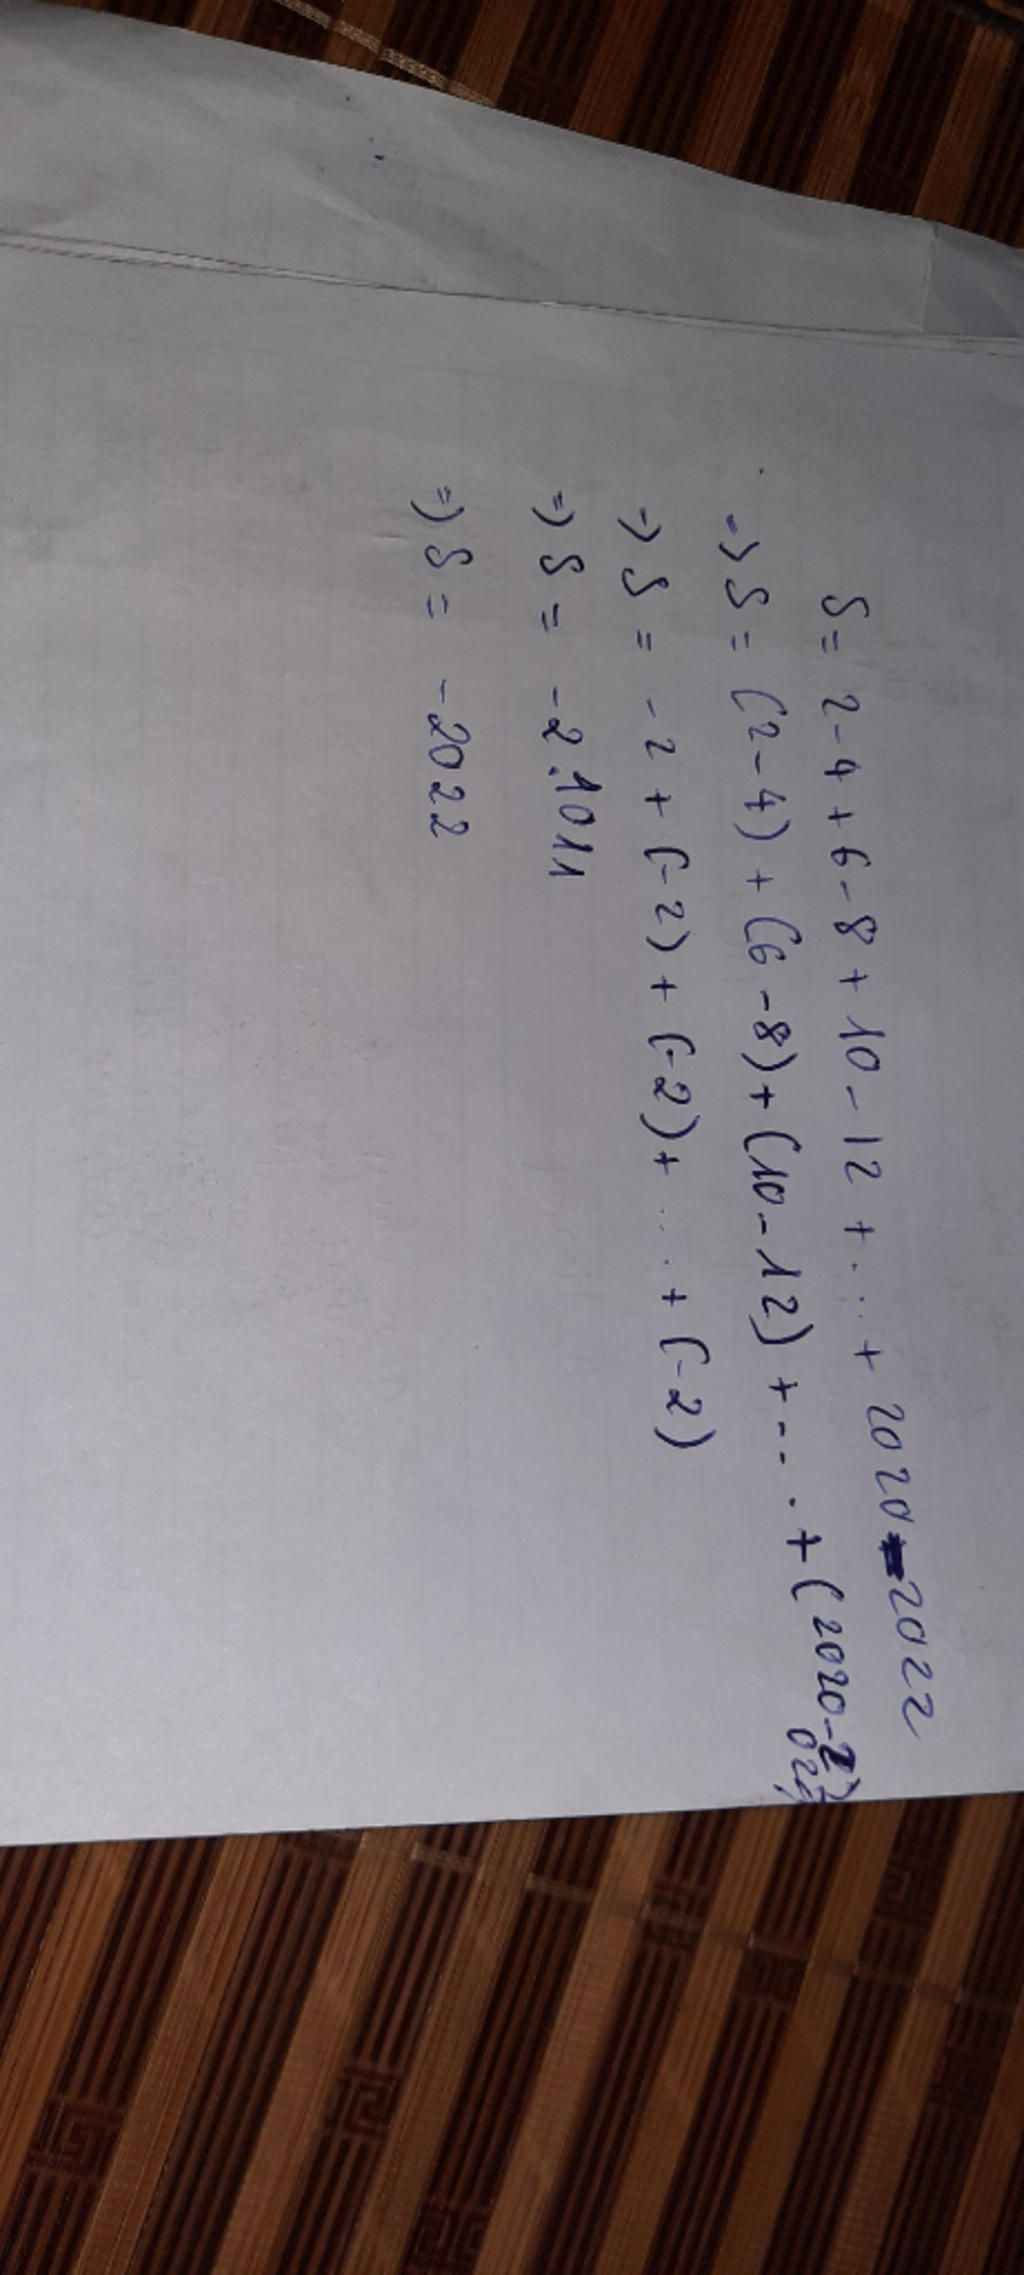 S = 2 - 4 + 6 - 8 + 10 - 12 + ... + 2020 - 2022
=> S = (2 - 4) + (6 - 8) + (10 - 12) + ... + (2020 - 2022)
=> S = - 2 + (-2) + (-2) + ... + (-2)
=> S = -2.1011
=> S = -2022